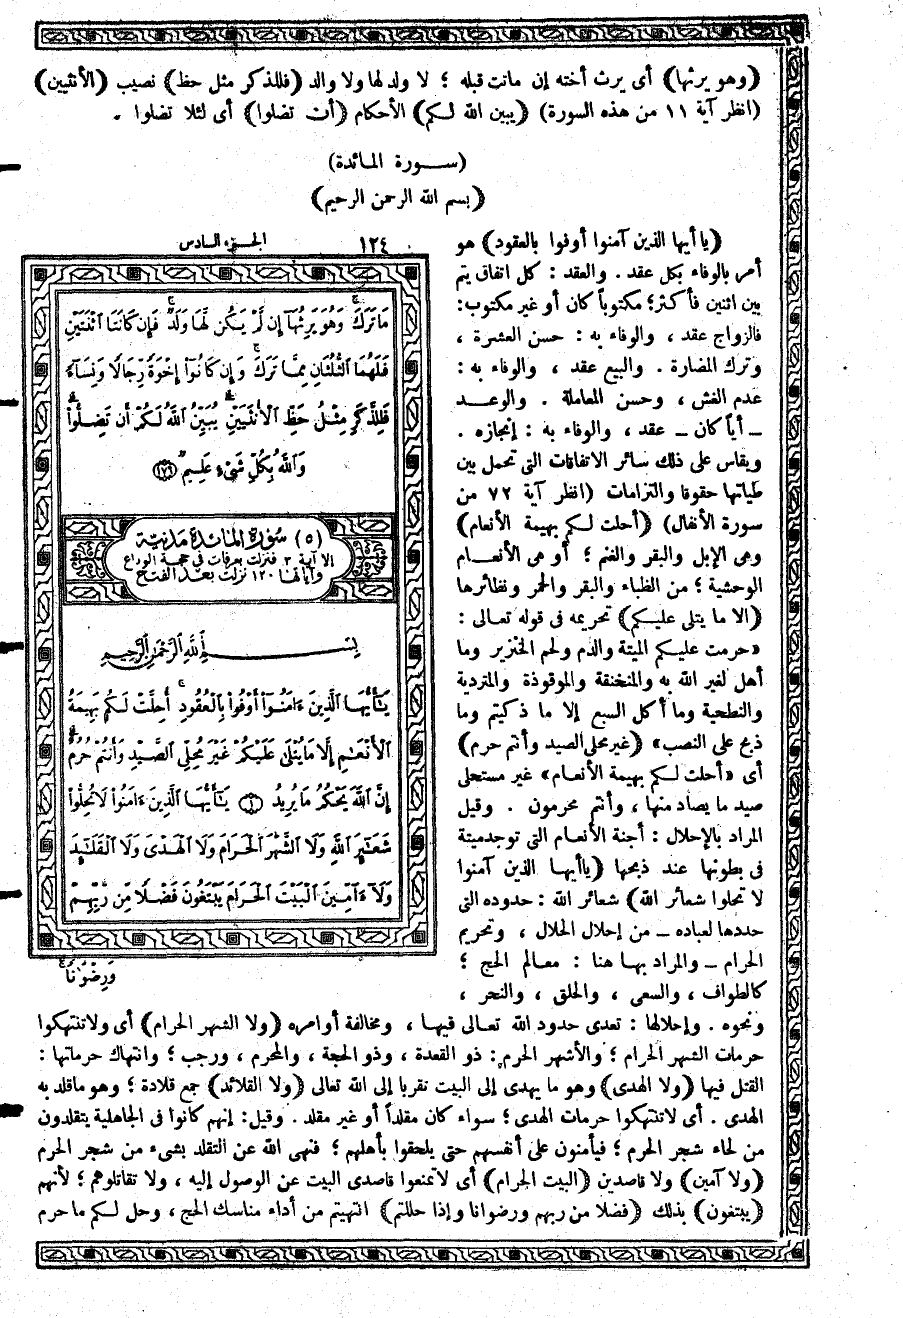 (وهو يرثها) أى يرث أخته إن ماتت قبله ؛ لا ولد لها ولا والد (فللذكر مثل حظ) نصيب (الأنثيين)
(انظر آية ١١ من هذه السورة) (يبين الله لكم) الأحكام (أن تضلوا) أى لئلا تضلوا .
(سورة المائدة)
(بسم الله الرحمن الرحيم)
(يا أيها الذين آمنوا أوفوا بالعقود) هو
أمر بالوفاء بكل عقد . والعقد : كل اتفاق يتم
بين اثنين فأكثر؛ مكتوباً كان أو غير مكتوب:
فالزواج عقد ، والوفاء به : حسن العشرة ،
وترك المضارة . والبيع عقد ، والوفاء به :
عدم الغش ، وحسن المعاملة . والوعد
ـ أياً كان ـ عقد ، والوفاء به : إنجازه .
ويقاس على ذلك سائر الاتفاقات التى تحمل بين
طياتها حقوقا والتزامات (انظر آية ٧٢ من
سورة الأنفال) (أحلت لكم بهيمة الأنعام)
وهى الإبل والبقر والغنم ؛ أو هى الأنعام
الوحشية ؛ من الظباء والبقر والحمر ونظائرها
(الا ما يتلى عليكم) تحريمه فى قوله تعالى :
«حرمت عليكم الميتة والدم ولحم الخنزير وما
أهل لغير الله به والمنخنقة والموقوذة والمتردية
والنطحية وما أكل السبع إلا ما ذكيتم وما
ذبح على النصب» (غير محلى الصيد وأنتم حرم)
أى «أحلت لكم بهيمة الأنعام» غير مستحلى
صيد ما يصاد منها ، وأنتم محرمون . وقيل
المراد بالإحلال : أجنة الأنعام التى توجد ميتة
فى بطونها عند ذبحها (ياأيها الذين آمنوا
لا تحلوا شعائر الله) شعائر الله : حدوده التى
حددها لعباده ـ من إحلال الحلال ، وتحريم
الحرام ـ والمراد بها هنا : معالم الحج ؛
كالطواف ، والسعى ، والحلق ، والنحر ،
١٢٤ الجزء السادس
مَا تَرَكَ ۚ وَهُوَ يَرِثُهَآ إِن لَّمْ يَكُن لَّهَا وَلَدٌ ۚ فَإِن كَانَتَا ٱثْنَتَيْنِ
فَلَهُمَا ٱلثُّلُثَانِ مِمَّا تَرَكَ ۚ وَإِن كَانُوٓا۟ إِخْوَةً رِّجَالًا وَنِسَآءً
فَلِلذَّكَرِ مِثْلُ حَظِّ ٱلْأُنثَيَيْنِ ۗ يُبَيِّنُ ٱللَّهُ لَكُمْ أَن تَضِلُّوا۟ ۗ
وَٱللَّهُ بِكُلِّ شَىْءٍ عَلِيمٌۢ (١٧٦)
(٥) سورة المائدة مدنية
الا آية ٣ فنزلت بعرفات فى حجة الوداع
وآياتها ١٢٠ نزلت بعد الفتح
بِسْمِ ٱللَّهِ ٱلرَّحْمَٰنِ ٱلرَّحِيمِ
يَٰٓأَيُّهَا ٱلَّذِينَ ءَامَنُوٓا۟ أَوْفُوا۟ بِٱلْعُقُودِ ۚ أُحِلَّتْ لَكُم بَهِيمَةُ
ٱلْأَنْعَٰمِ إِلَّا مَا يُتْلَىٰ عَلَيْكُمْ غَيْرَ مُحِلِّى ٱلصَّيْدِ وَأَنتُمْ حُرُمٌ ۗ
إِنَّ ٱللَّهَ يَحْكُمُ مَا يُرِيدُ (١) يَٰٓأَيُّهَا ٱلَّذِينَ ءَامَنُوا۟ لَا تُحِلُّوا۟
شَعَٰٓئِرَ ٱللَّهِ وَلَا ٱلشَّهْرَ ٱلْحَرَامَ وَلَا ٱلْهَدْىَ وَلَا ٱلْقَلَٰٓئِدَ
وَلَآ ءَآمِّينَ ٱلْبَيْتَ ٱلْحَرَامَ يَبْتَغُونَ فَضْلًا مِّن رَّبِّهِمْ
وَرِضْوَٰنًا ۚ
ونحوه . وإحلالها : تعدى حدود الله تعالى فيها ، ومخالفة أوامره (ولا الشهر الحرام) أى ولا تنتهكوا
حرمات الشهر الحرام ؛ والأشهر الحرم : ذو القعدة ، وذو الحجة ، والمحرم ، ورجب ؛ وانتهاك حرماتها :
القتل فيها (ولا الهدى) وهو ما يهدى إلى البيت تقربا إلى الله تعالى (ولا القلائد) جمع قلادة ؛ وهو ما قلد به
الهدى . أى لا تنتهكوا حرمات الهدى ؛ سواء كان مقلداً أو غير مقلد . وقيل : إنهم كانوا فى الجاهلية يتقلدون
من لحاء شجر الحرم ؛ فيأمنون على أنفسهم حتى يلحقوا بأهلهم ؛ فنهى الله عن التقلد بشىء من شجر الحرم
(ولا آمين) ولا قاصدين (البيت الحرام) أى لا تمنعوا قاصدى البيت عن الوصول إليه ، ولا تقاتلوهم ؛ لأنهم
(يبتغون) بذلك (فضلا من ربهم ورضوانا وإذا حللتم) انتهيتم من أداء مناسك الحج ، وحل لكم ما حرم